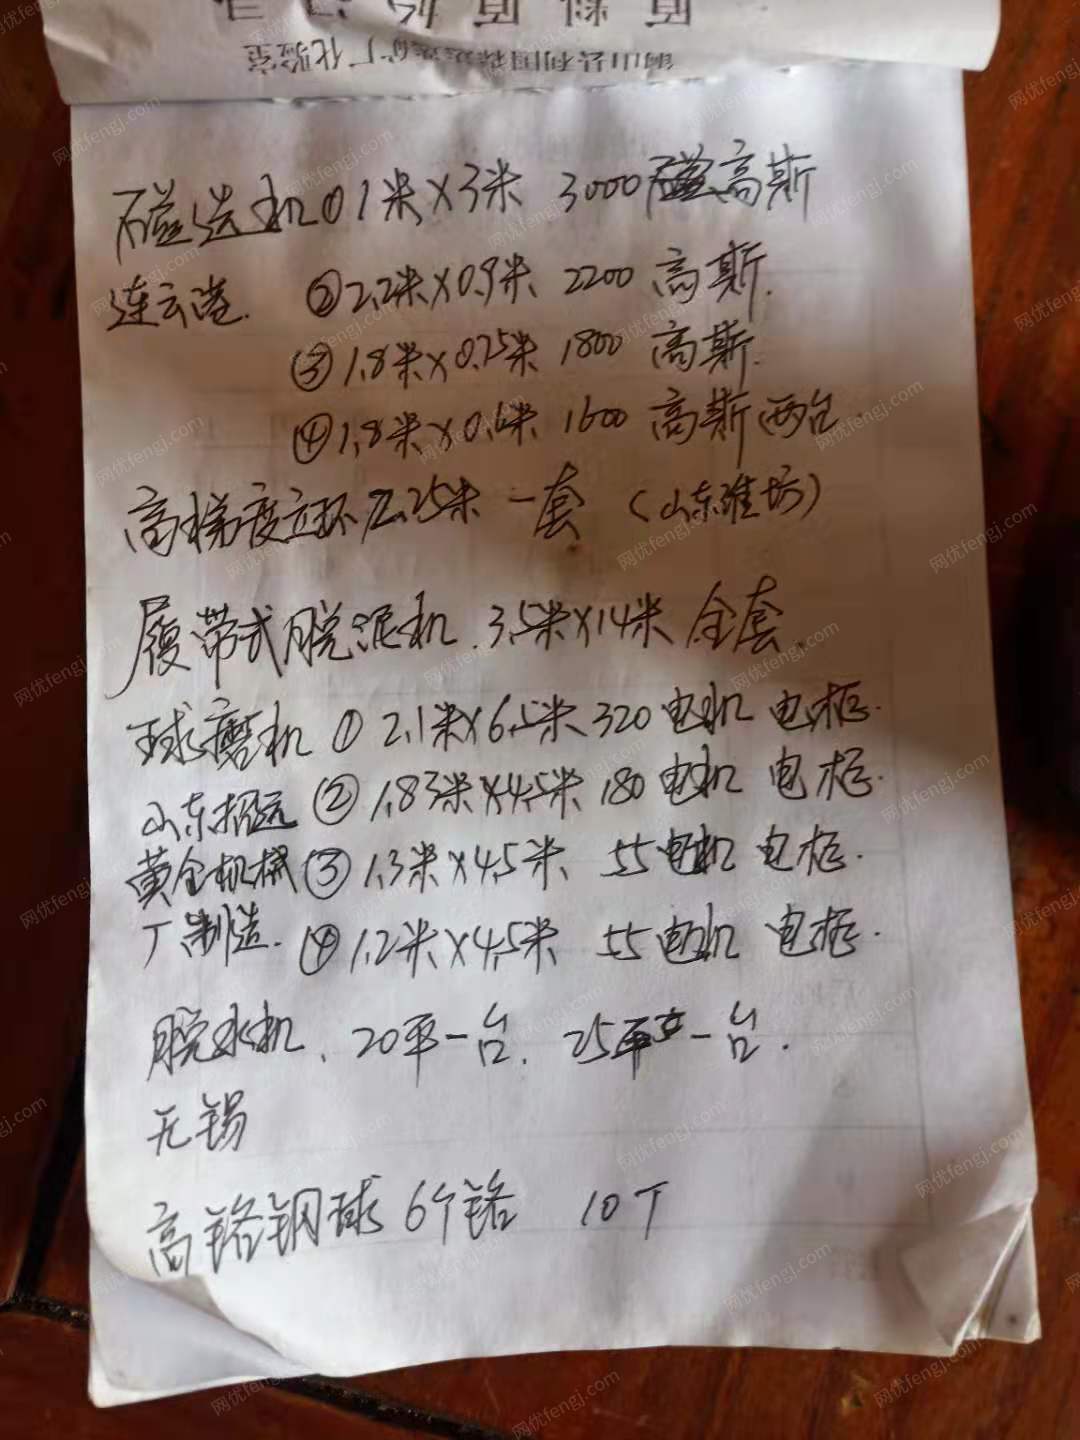 铜山县利国
厂化验室
磁选机①1米×3米 3000磁高斯
连云港. ②2.2米×0.9米 2200 高斯.
③1.8米×0.75米 1800 高斯.
④1.8米×0.6米 1600 高斯两台
高梯度立环2.25米 一套 (山东潍坊)
履带式脱泥机. 3.5米×14米 全套.
球磨机 ① 2.1米×6.5米 320电机 电柜.
山东招远 ② 1.83米×4.5米 180电机 电柜.
黄金机械 ③ 1.3米×4.5米 55电机 电柜.
厂制造. ④ 1.2米×4.5米 55电机 电柜.
脱水机、20平一台、25平一台.
无锡
高铬钢球 6个铬 10T
网优fengj.com